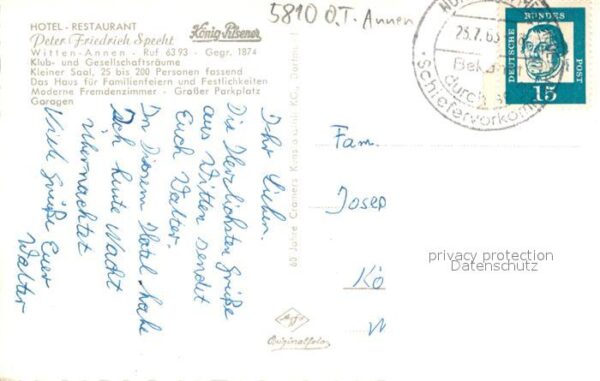 5810 O.T. Annen
HOTEL - RESTAURANT
Peter Friedrich Specht
König-Pilsener
Witten-Annen - Ruf 6393 - Gegr. 1874
Klub- und Gesellschaftsräume
Kleiner Saal, 25 bis 200 Personen fassend
Das Haus für Familienfeiern und Festlichkeiten
Moderne Fremdenzimmer - Großer Parkplatz
Garagen
Ihr Lieben.
Die Herzlichsten Grüße
aus Witten sendet
Euch Walter.
In Diesem Hotel habe
Ich heute Nacht
übernachtet
Viele Grüße Euer
Walter
60 Jahre Cramers Kunstanstalt KG, Dortmund
Agfa
Originalfoto
25.7.63
Bekannt
durch
Schiefervorkommen
DEUTSCHE
BUNDES
POST
15
Fam.
Josep
Kö
W
privacy protection
Datenschutz